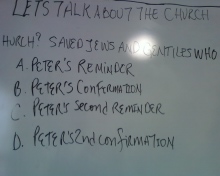 LETS TALK ABOUT THE CHURCH
HURCH? SAVED JEWS AND GENTILES WHO
A. PETER'S REMINDER
B. PETER'S CONFIRMATION
C. PETER'S SECOND REMINDER
D. PETER'S 2nd CONFIRMATION